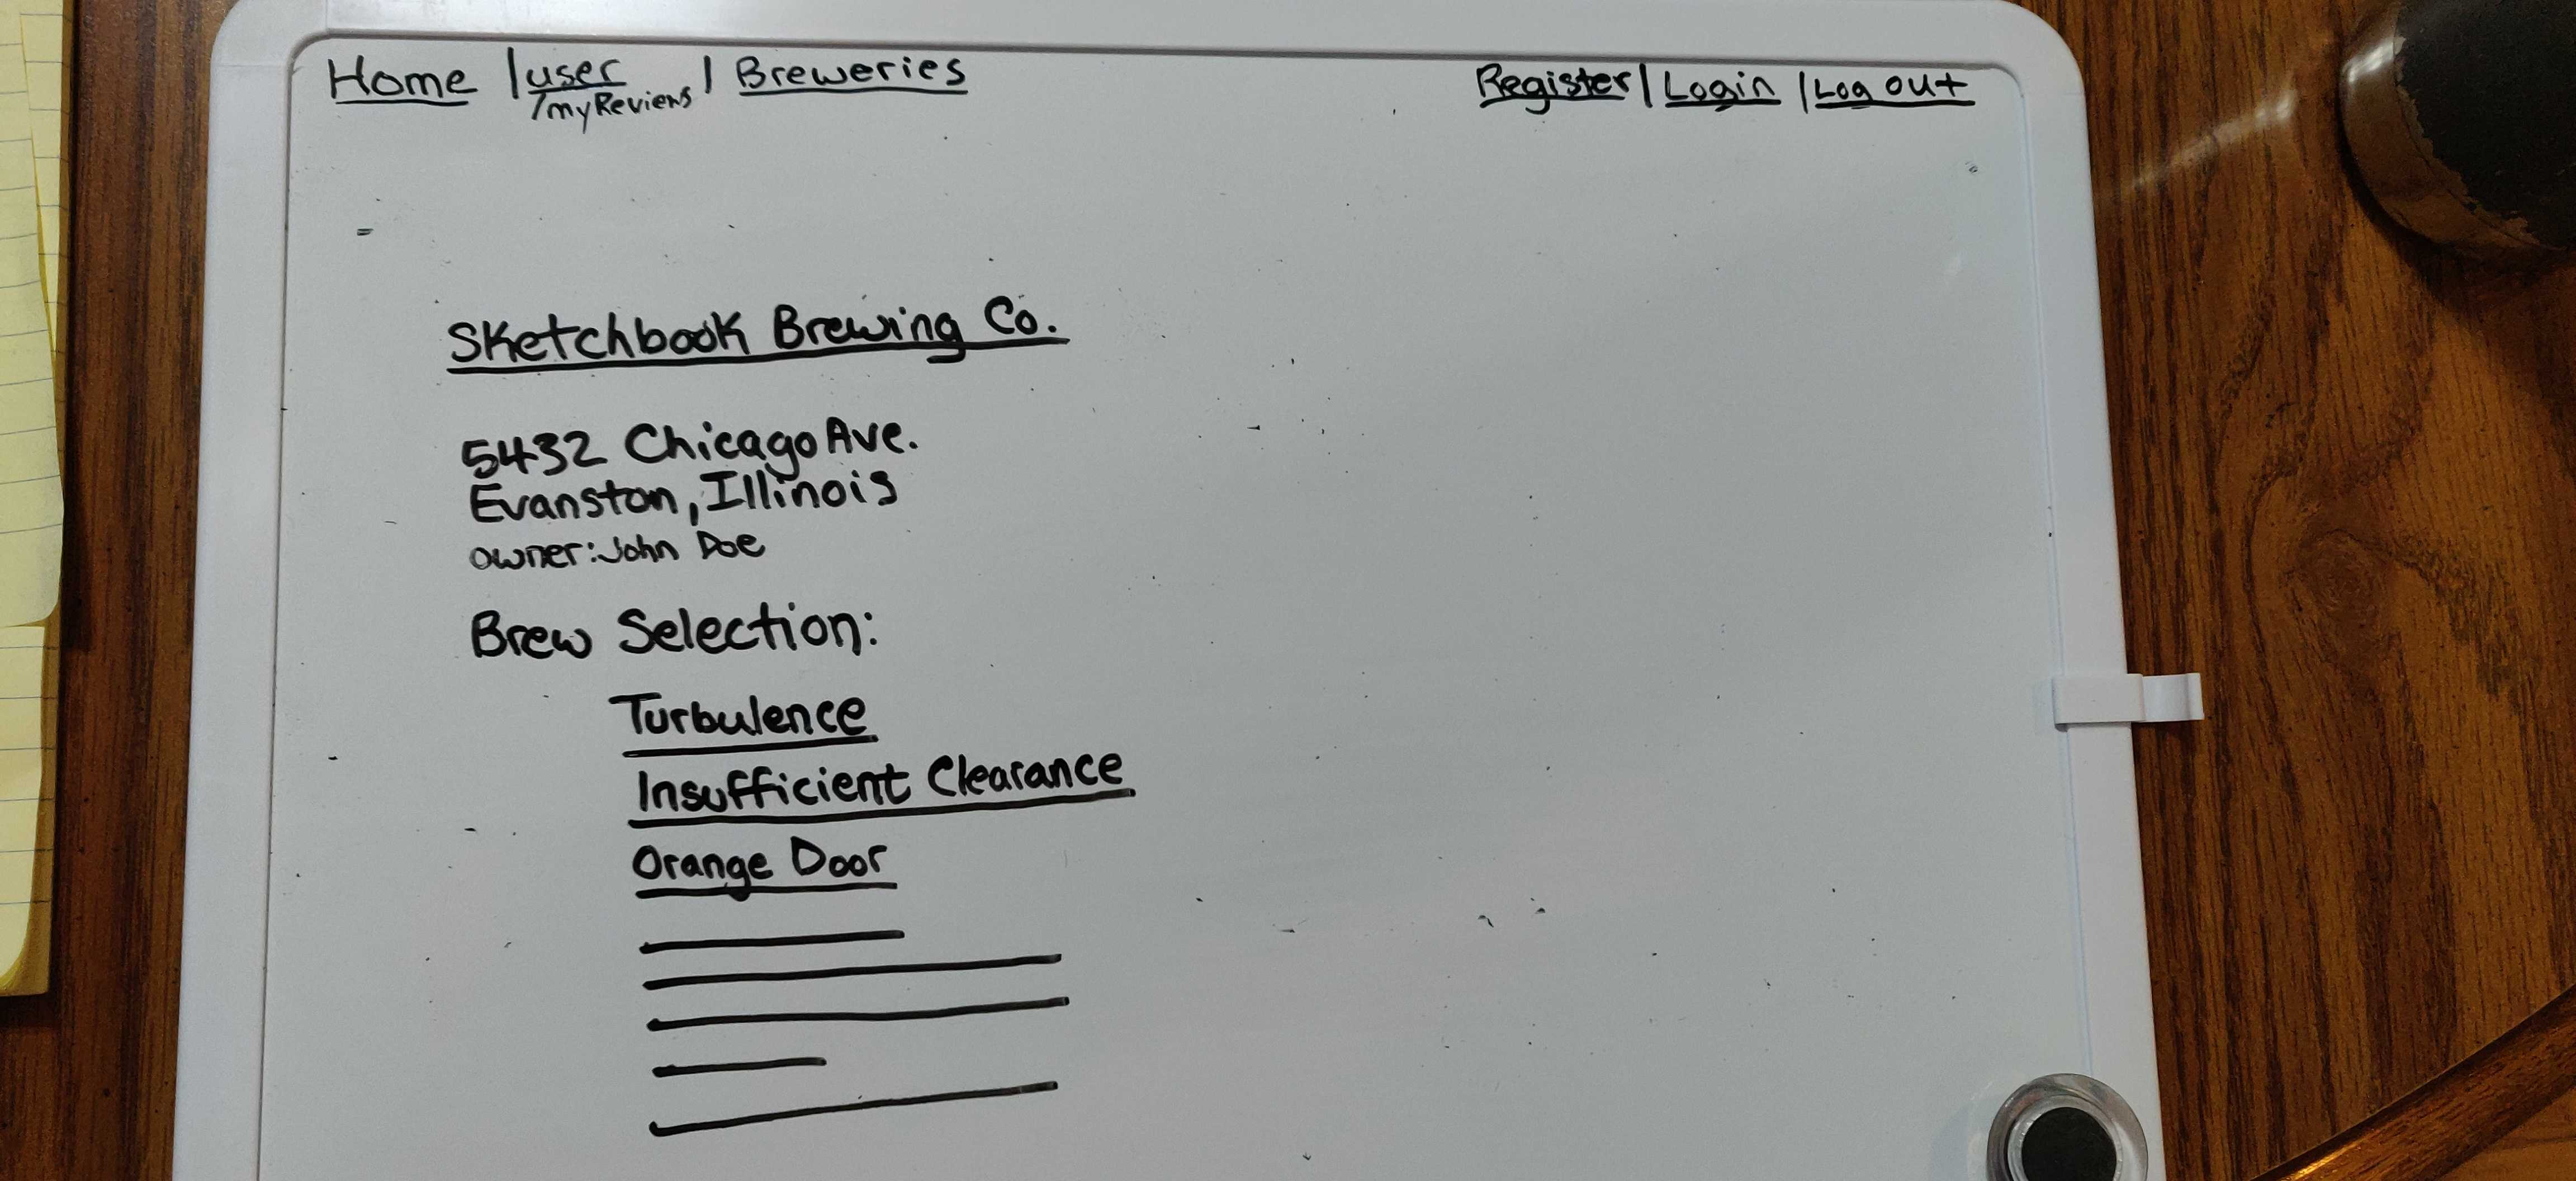 Home | user | Breweries
/myReviews
Register | Login | Log out
Sketchbook Brewing Co.
5432 Chicago Ave.
Evanston, Illinois
owner: John Doe
Brew Selection:
Turbulence
Insufficient Clearance
Orange Door